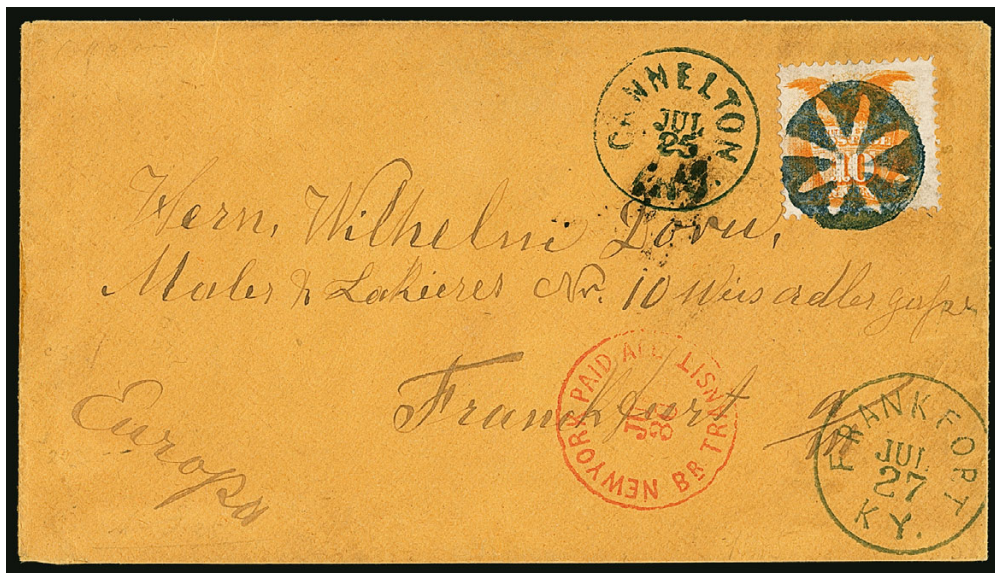 CANNELTON
JUL
25
10
Herrn, Wilhelm
Maler & Lakierer Nr. 10 Weisadlergasse
Franckfurt a/m
Europa
NEW YORK PAID ALL BR TRANSIT
JUL
30
FRANKFORT
JUL
27
KY.